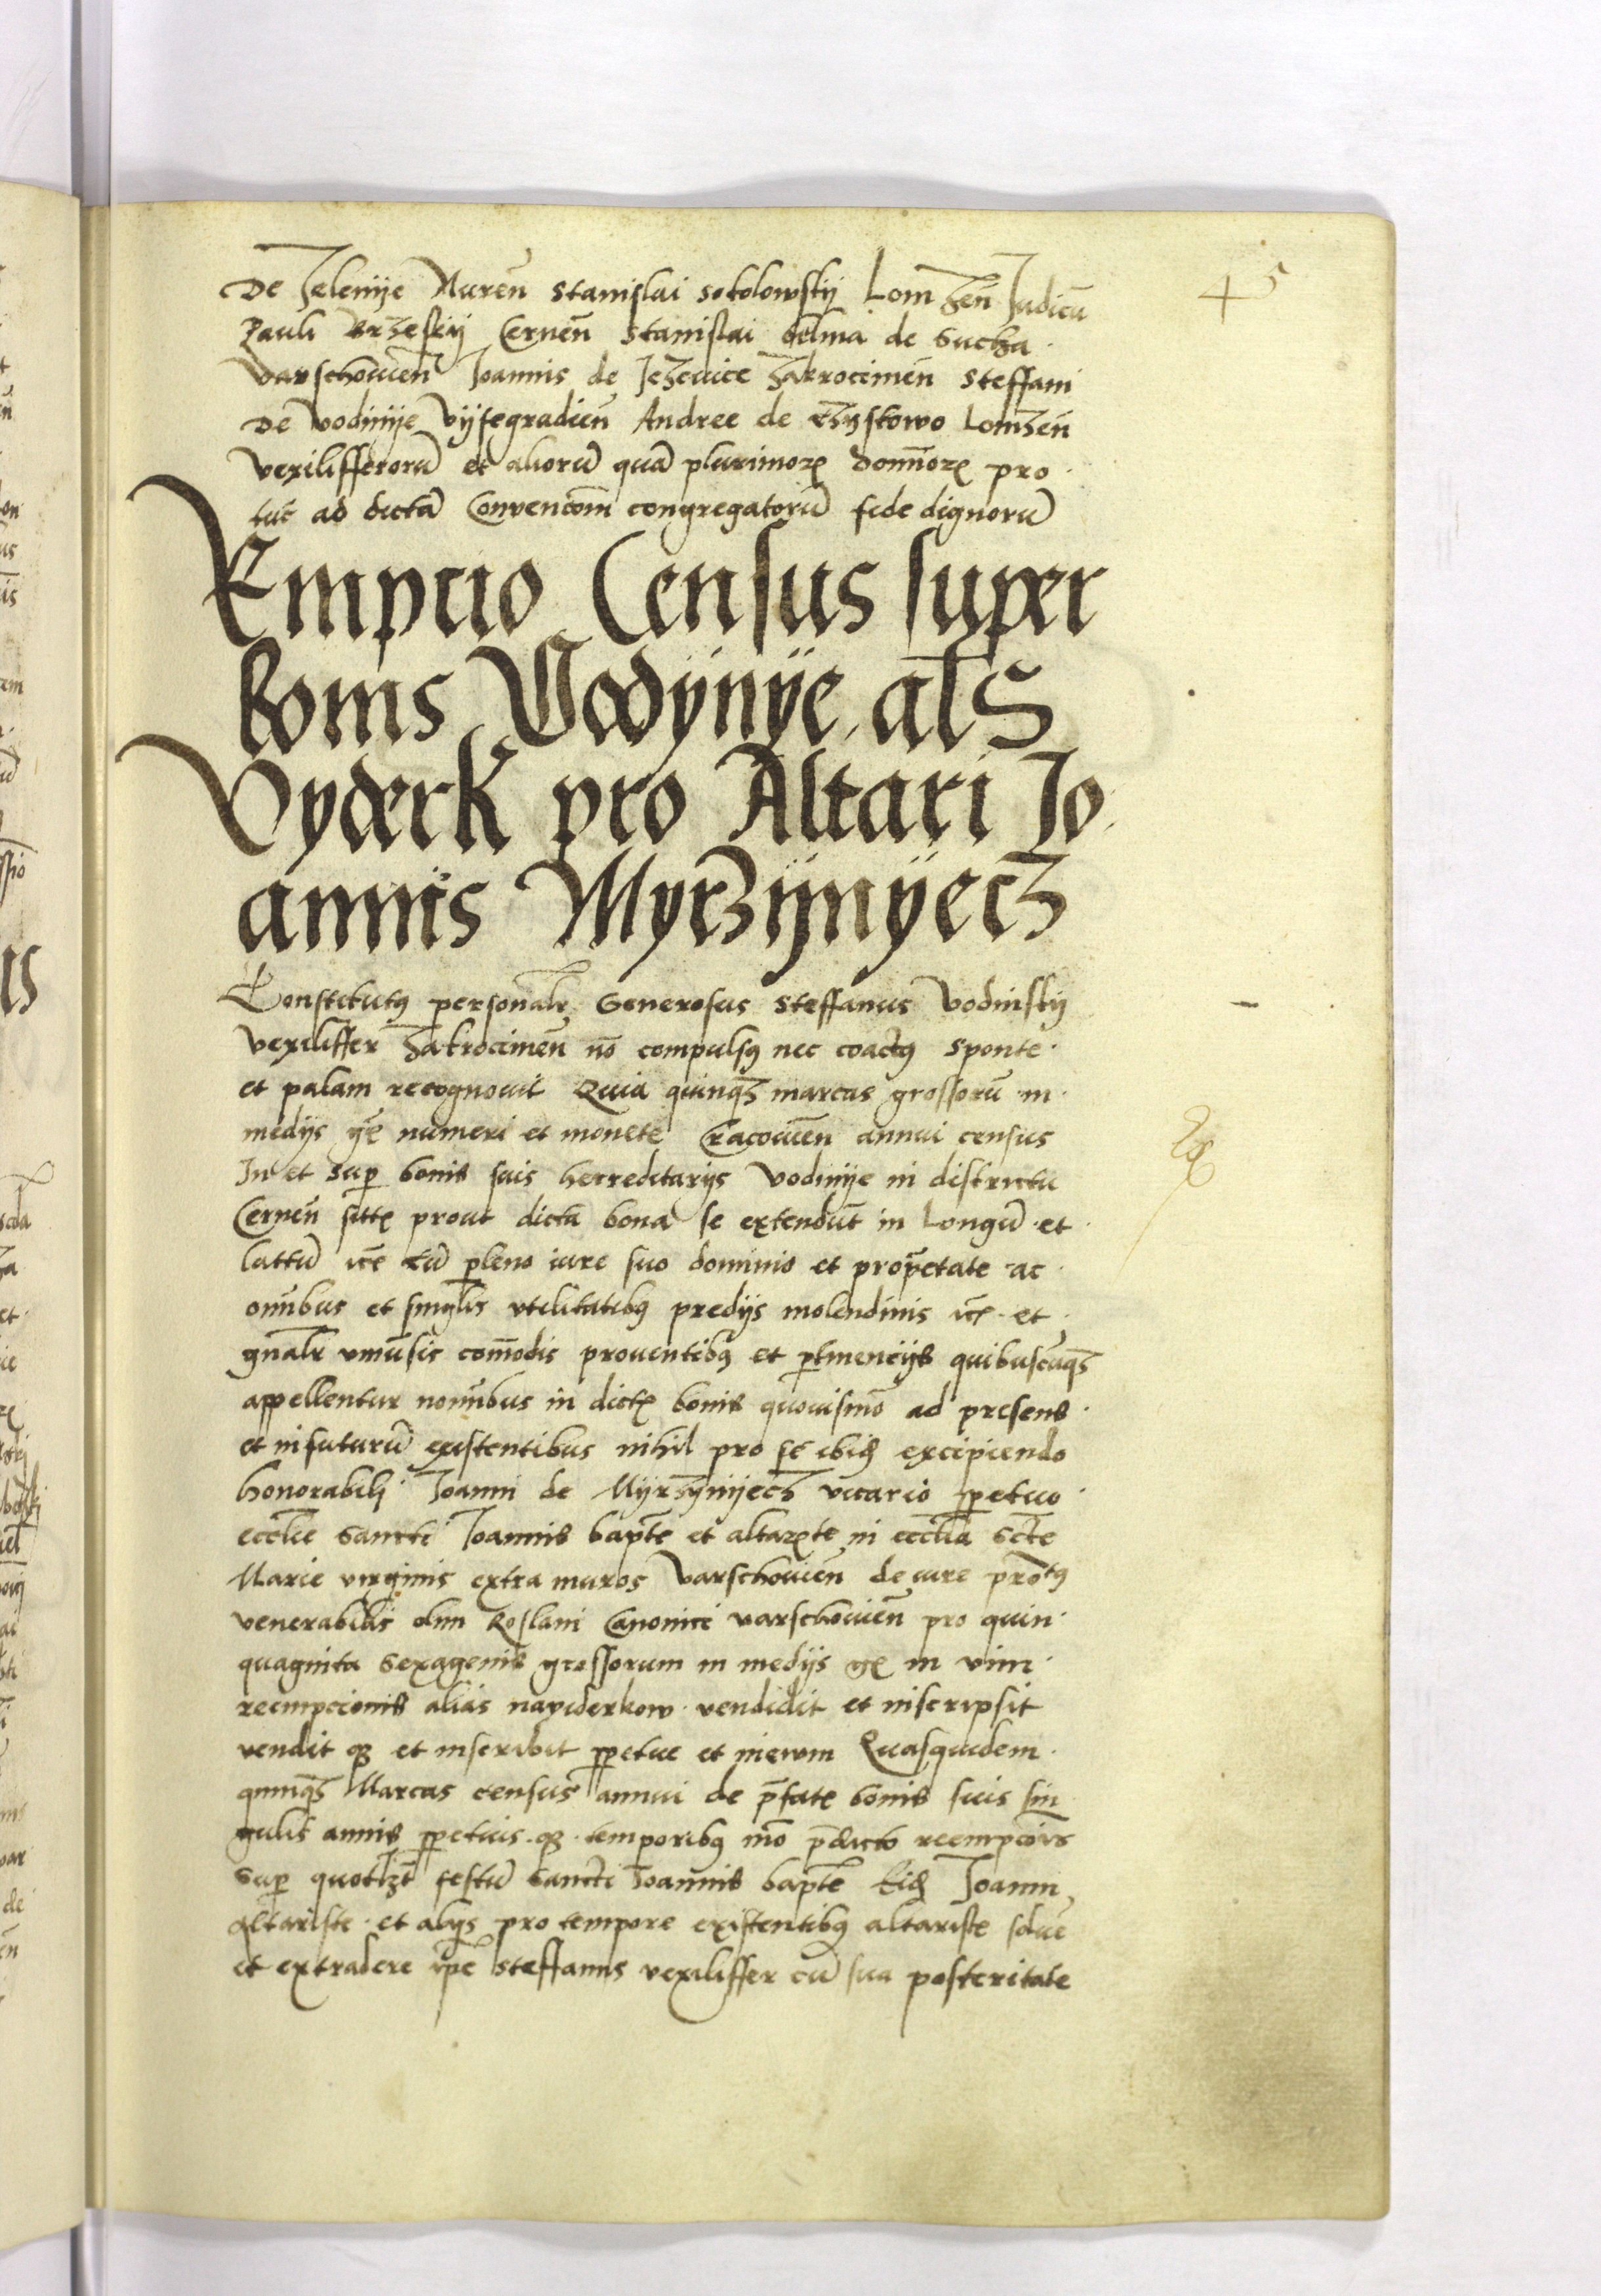 De Zelenije Nuren̄ Stanislai Sokolowskij Lomzen̄ Judicū
Pauli Brzeskij Cernen̄ Stanislai Selma de Sucha
varschowien̄ Joannis de Jezewice Zakrocimen̄ Steffani
De vodinije vijsegradien̄ Andree de Lomzen̄
vexilifferorū et aliorū quā plurimorꝝ domīorꝝ pro
tūc ad dictā Convencōm congregatorū fide dignorū
Empcio Census super
bonis Vodijnije als
Vyderk pro Altari Jo
annis Myrzijnijecz
Constitutꝰ personalr̄ Generosus Steffanus vodinskij
vexiliffer Zakrocimen̄ nō compulsꝰ nec coactꝰ sponte
et palam recognouit Quia quinqꝫ marcas grossorū in
medijs gꝛ̄ numeri et monete Cracowien̄ annui census
In et suꝑ bonis suis hereditarijs vodinije in districtu
Cernen̄ sittꝭ prout dicta bona se extendūt in Longū et
lattū itē cū pleno iure suo dominio et proprietate ac
omībus et singlis vtilitatibꝰ predijs molendinis itē et
gnalr̄ vniūsis com̄odis prouentibꝰ et ꝑtinencijs quibuscūqꝫ
appellentur nomībus in dictꝭ bonis quouismō ad presens
et in futurū existentibus nihil pro se ibidꝫ excipiendo
honorabili Joanni de Mijrzijnijecz vicario ꝑpetuo
eccl̄ie Sancti Joannis bapt̄e et altariste in eccl̄ia Sct̄e
Marie virginis extra muros varschowien̄ de iure prōtꝰ
venerabilis olim Roslani Canonici varschowien̄ pro quin
quaginta Sexagenis grossorum in medijs gꝛ̄ in vim
reempcionis alias nayiderkow vendidit et inscripsit
vendit qꝫ et inscribit ꝑpetue et in ewm Quasquidem
quinqꝫ Marcas census annui de p̄fatꝭ bonis suis sin
gulis annis ꝑpetuis qꝫ temporibꝰ mō p̄dicto reempcōis
Suꝑ quotlꝫt festū Sancti Joannis bapt̄e Eidꝫ Joanni
altariste et alijs pro tempore existentibꝰ altariste solue
et extradere ip̄e Steffanus vexiliffer cū sua posteritate